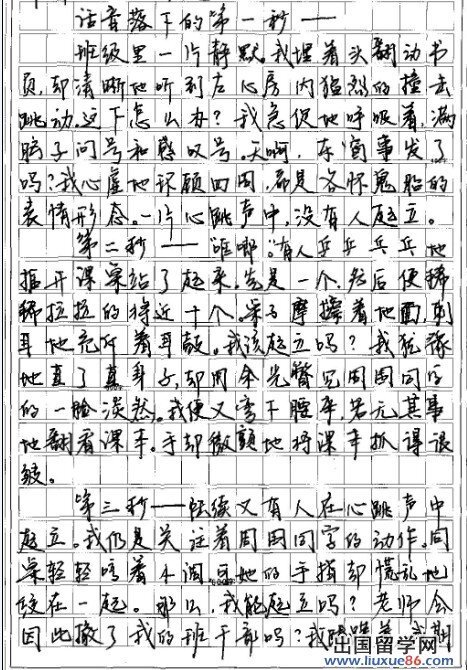 话音落下的第一秒——
班级里一片静默。我埋着头翻动书
页,却清晰地听到左心房内猛烈的撞击
跳动。这下怎么办?我急促地呼吸着,满
脑子问号和感叹号。天啊,东窗事发了
吗?我心虚地环顾四周,都是各怀鬼胎的
表情形态。一片心跳声中,没有人起立。
第二秒——"哐啷"。有人乒乒乓乓地
挪开课桌站了起来。先是一个,然后便稀
稀拉拉的将近十个。桌子摩擦着地面,刺
耳地充斥着耳鼓。我该起立吗?我犹豫
地直了直身子,却用余光瞥见周围同学
的一脸淡然。我便又弯下腰来,若无其事
地翻看课本。手却微颤地将课本抓得很
皱。
第三秒——陆续又有人在心跳声中
起立。我仍是关注着周围同学的动作。同
桌轻轻哼着小调可她的手指却慌乱地
绞在一起。那么,我能起立吗?老师会
因此撤了我的班干部吗?我
出国留学网
www.liuxue86.com